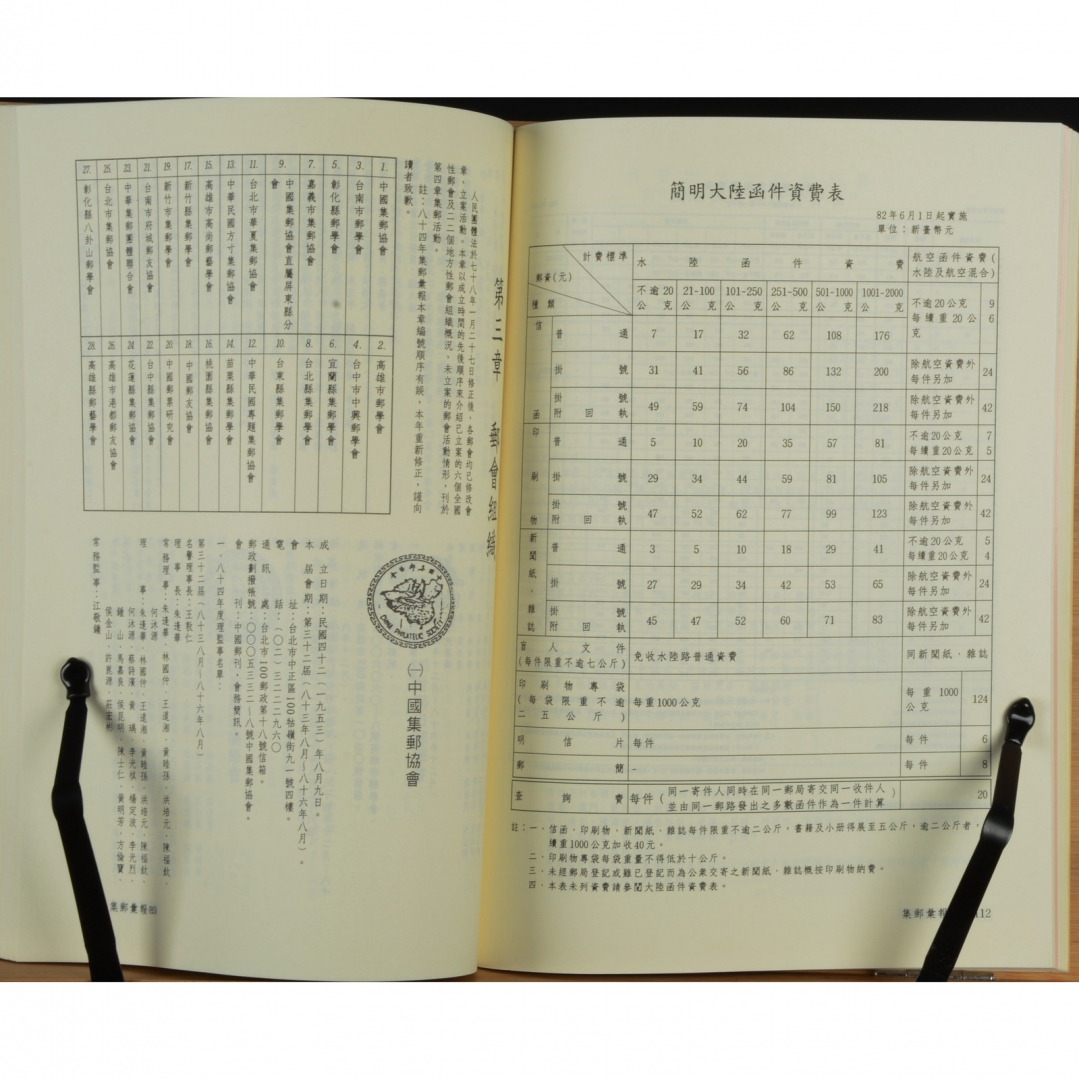 簡明大陸函件資費表
82年6月1日起實施
單位：新臺幣元
計費標準
郵資(元)
種類
水陸函件資費
航空函件資費(水陸及航空混合)
不逾20公克 21-100公克 101-250公克 251-500公克 501-1000公克 1001-2000公克
信函
普通 7 17 32 62 108 176 不逾20公克 9 每續重20公克 6
掛號 31 41 56 86 132 200 除航空資費外每件另加 24
掛號附回執 49 59 74 104 150 218 除航空資費外每件另加 42
印刷物
普通 5 10 20 35 57 81 不逾20公克 7 每續重20公克 5
掛號 29 34 44 59 81 105 除航空資費外每件另加 24
掛號附回執 47 52 62 77 99 123 除航空資費外每件另加 42
新聞紙、雜誌
普通 3 5 10 18 29 41 不逾20公克 5 每續重20公克 4
掛號 27 29 34 42 53 65 除航空資費外每件另加 24
掛號附回執 45 47 52 60 71 83 除航空資費外每件另加 42
盲人文件(每件限重不逾七公斤) 免收水陸路普通資費 同新聞紙、雜誌
印刷物專袋(每袋限重不逾二五公斤) 每重1000公克 每重1000公克 124
明信片 每件 每件 6
郵簡 - 每件 8
查詢費 每件(同一寄件人同時在同一郵局寄交同一收件人並由同一郵路發出之多數函件作為一件計算) 20
註：一、信函、印刷物、新聞紙、雜誌每件限重不逾二公斤。書籍及小冊得展至五公斤，逾二公斤者，
續重1000公克加收40元。
二、印刷物專袋每袋重量不得低於十公斤。
三、未經郵局登記或雖已登記而為公眾交寄之新聞紙、雜誌概按印刷物納費。
四、本表未列資費請參閱大陸函件資費表。
集郵彙報 112
第三章 郵會組織
人民團體法於七十八年一月二十七日修正後，各郵會均已修改會
章，立案活動。本章以成立時間的先後順序來介紹已立案的六個全國
性郵會及二二個地方性郵會組織概況，未立案的郵會活動情形，刊於
第四章集郵活動。
註：八十四年集郵彙報本章編號順序有誤，本年重新修正，謹向
讀者致歉。
1. 中國集郵協會
2. 高雄市郵學會
3. 台南市郵學會
4. 台中市中興郵學會
5. 彰化縣郵學會
6. 宜蘭縣集郵學會
7. 嘉義市集郵協會
8. 台北縣集郵學會
9. 中國集郵協會直屬屏東縣分會
10. 台東縣集郵學會
11. 台北市華夏集郵協會
12. 中華民國專題集郵協會
13. 中華民國方寸集郵協會
14. 苗栗縣集郵學會
15. 高雄市高尚郵藝學會
16. 桃園縣集郵協會
17. 新竹縣集郵學會
18. 中國郵友協會
19. 新竹市集郵學會
20. 中國郵票研究會
21. 台南市府城郵友協會
22. 台中縣集郵協會
23. 中華集郵團體聯合會
24. 花蓮縣集郵協會
25. 台北市集郵協會
26. 高雄市港都郵友協會
27. 彰化縣八卦山郵學會
28. 高雄縣郵藝學會
CHINA PHILATELIC SOCIETY
(一)中國集郵協會
成立日期：民國四十二(一九五三)年八月九日。
本屆會期：第三十二屆(八十三年八月～八十六年八月)。
會址：台北市中正區100牯嶺街九一號四樓。
電話：(〇二)三二二二九六〇
通訊處：台北市100郵政第十八號信箱。
郵政劃撥帳號：〇〇〇五三三二一八號中國集郵協會。
會刊：中國郵刊，會務簡訊。
一、八十四年度理監事名單：
第三十二屆(八十三年八月～八十六年八月)
名譽理事長：王敬仁
理事長：朱逢華
常務理事：朱逢華、林國仲、王道湘、黃睦孫、洪培元、陳福欽、
何沐源
理事：朱逢華、林國仲、王道湘、黃睦孫、洪培元、陳福欽、
何沐源、蔡詩濱、黃瑀、李光棋、楊定波、李光烈、
鍾山、馬嘉長、侯昆明、陳士仁、黃明芳、方倫寶、
侯金山、許禼源、莊宏彬
常務監事：江敬鏞
集郵彙報